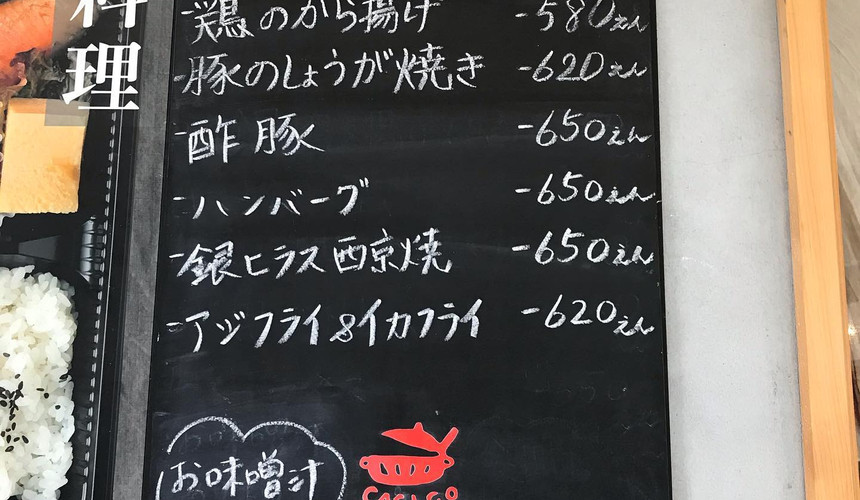 料理
-鶏のから揚げ -580えん
-豚のしょうが焼き -620えん
-酢豚 -650えん
-ハンバーグ -650えん
-銀ヒラス西京焼 -650えん
-アジフライ&イカフライ -620えん
お味噌汁